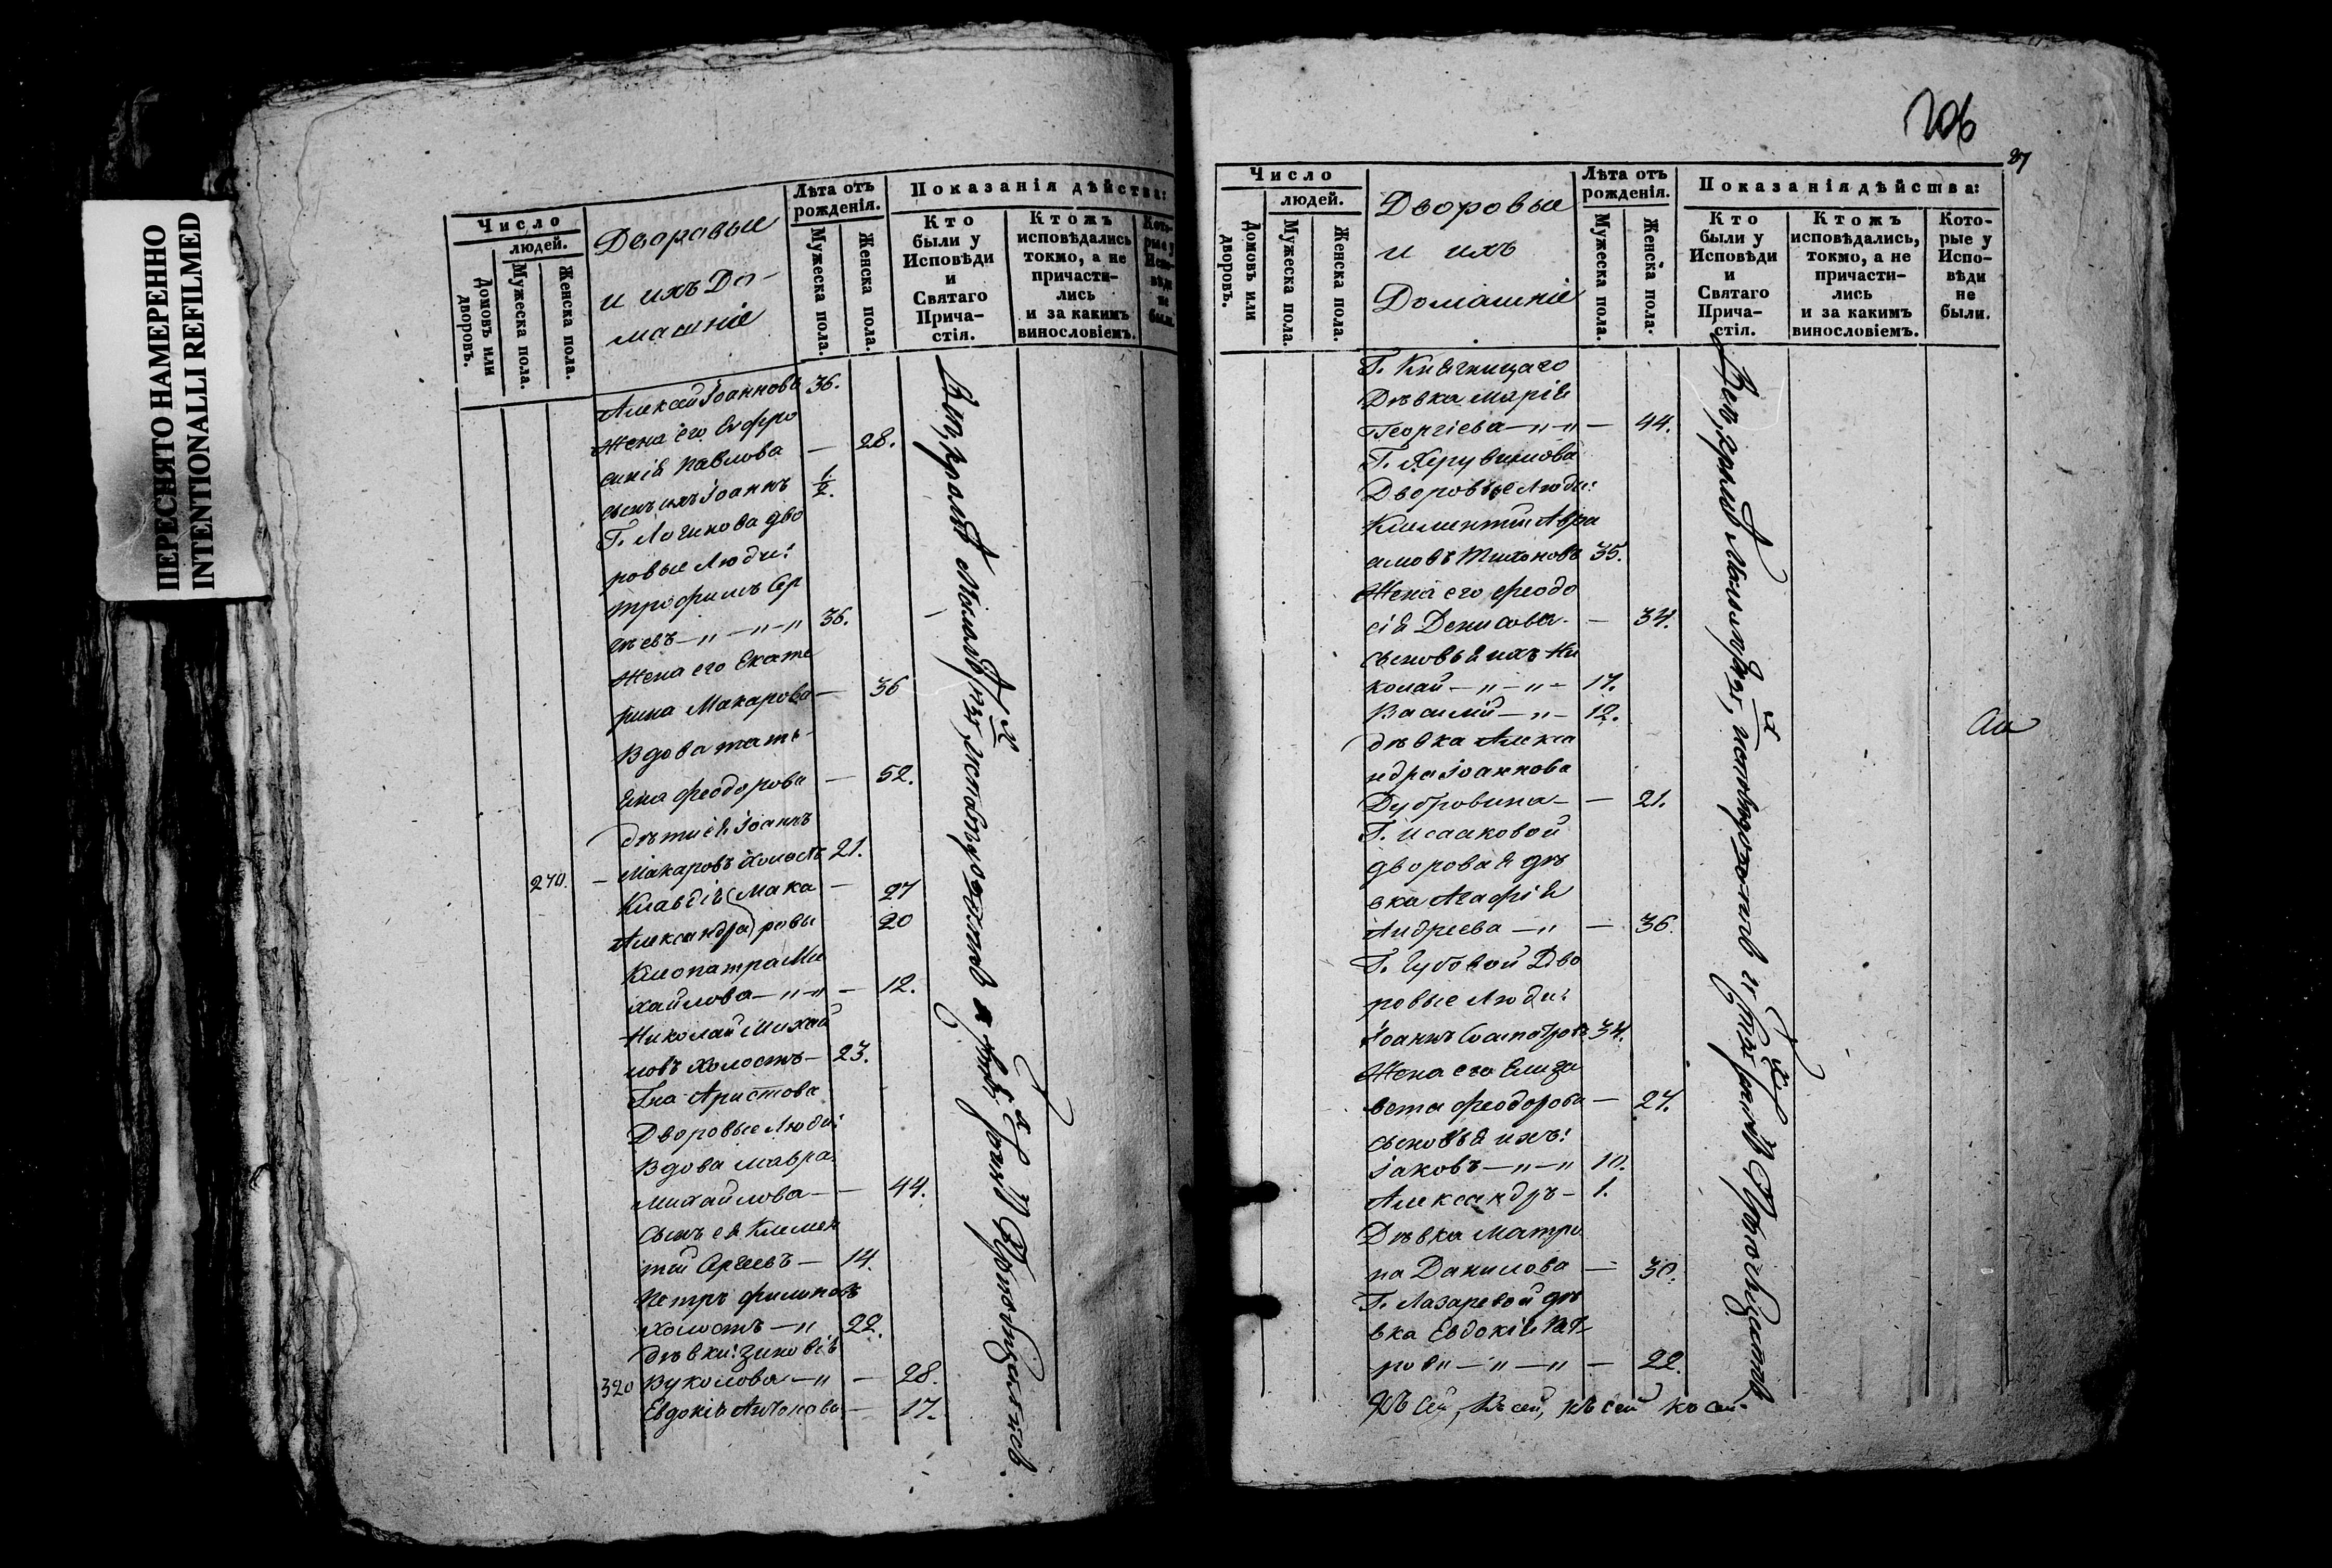 ПЕРЕСНЯТО НАМЕРЕННО
INTENTIONALLI REFILMED
Число
людей.
Домовъ или дворовъ.
Мужеска пола.
Женска пола.
Дворовые
и ихъ До-
машніе
Лѣта отъ
рожденія.
Мужеска пола.
Женска пола.
Показанія дѣйства:
Кто
были у
Исповѣди
и
Святаго
Прича-
стія.
Ктожъ
исповѣдались
токмо, а не
причасти-
лись
и за какимъ
винословіемъ.
Кото-
рые у
Испо-
вѣди
не
были.
Алексѣй Іоанновъ 36.
Жена его Евфро
синія Павлова — 28.
сынъ ихъ Іоаннъ ½.
Г. Логинова дво
ровые Люди:
Трофимъ Сер
гѣевъ —„—„—„ 36.
Жена его Екате
рина Макарова — 36
Вдова Тать-
яна Феодорова — 52.
дѣти ея Іоаннъ
270. — Макаровъ холостъ 21.
Клавдія (Мака — 27
Александра) ровы 20
Клеопатра Ми
хайлова —„—„— 12.
Николай Михай
ловъ холостъ — 23.
Гна Аристова
Дворовые Люди:
Вдова Мавра
Михайлова — — 44.
Сынъ ея Климен
тій Сергеевъ — 14.
Петръ Филиповъ
холостъ —„ 22.
дѣвки: Зиновія
320 Вуколова —„ — 28.
Евдокія Антонова — 17.
206
87
Число
людей.
Домовъ или дворовъ.
Мужеска пола.
Женска пола.
Дворовые
и ихъ
Домашніе
Лѣта отъ
рожденія.
Мужеска пола.
Женска пола.
Показанія дѣйства:
Кто
были у
Исповѣди
и
Святаго
Прича-
стія.
Ктожъ
исповѣдались,
токмо, а не
причасти-
лись
и за какимъ
винословіемъ.
Кото-
рые у
Испо-
вѣди
не
были.
Г. Княгницаго
Дѣвка Марія
Георгіева —„—„ — 44.
Г. Херувимова
Дворовые Люди:
Климентій Авра
амовъ Тихоновъ 35.
Жена его Феодо
сія Денисова — — 34.
сыновья ихъ Ни
колай —„—„— 17.
Василій —„— 12.
дѣвка Алекса
ндра Іоаннова
Дубровина — — 21.
Г. Исааковой
дворовая дѣ
вка Агафія
Андреева —„ — 36.
Г. Губовой Дво
ровые Люди:
Іоаннъ Сосипатровъ 34.
Жена его Елиза
вета Феодорова — 27.
сыновья ихъ:
Іаковъ —„—„ 10.
Александръ — 1.
Дѣвка Матро
на Данилова — 30.
Г. Лазаревой дѣ
вка Евдокія Пет
рова —„—„ — 22.